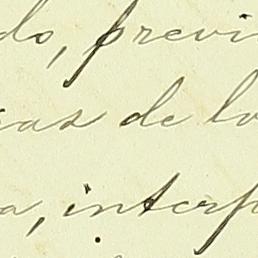 do, previ
ias de lo
a, interp